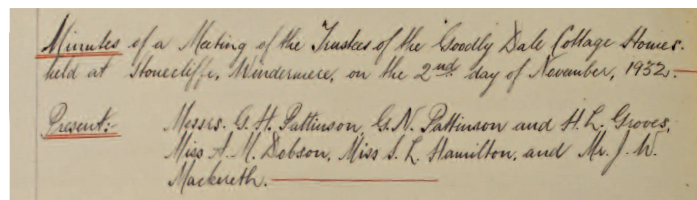 Minutes of a Meeting of the Trustees of the Goodly Dale Cottage Homes.
held at Stonecliffe, Windermere, on the 2nd day of November, 1932.
Present:- Messrs. G. H. Pattinson, G. N. Pattinson and H. L. Groves,
Miss A. M. Dobson, Miss S. L. Hamilton, and Mr. J. W.
Mackereth.